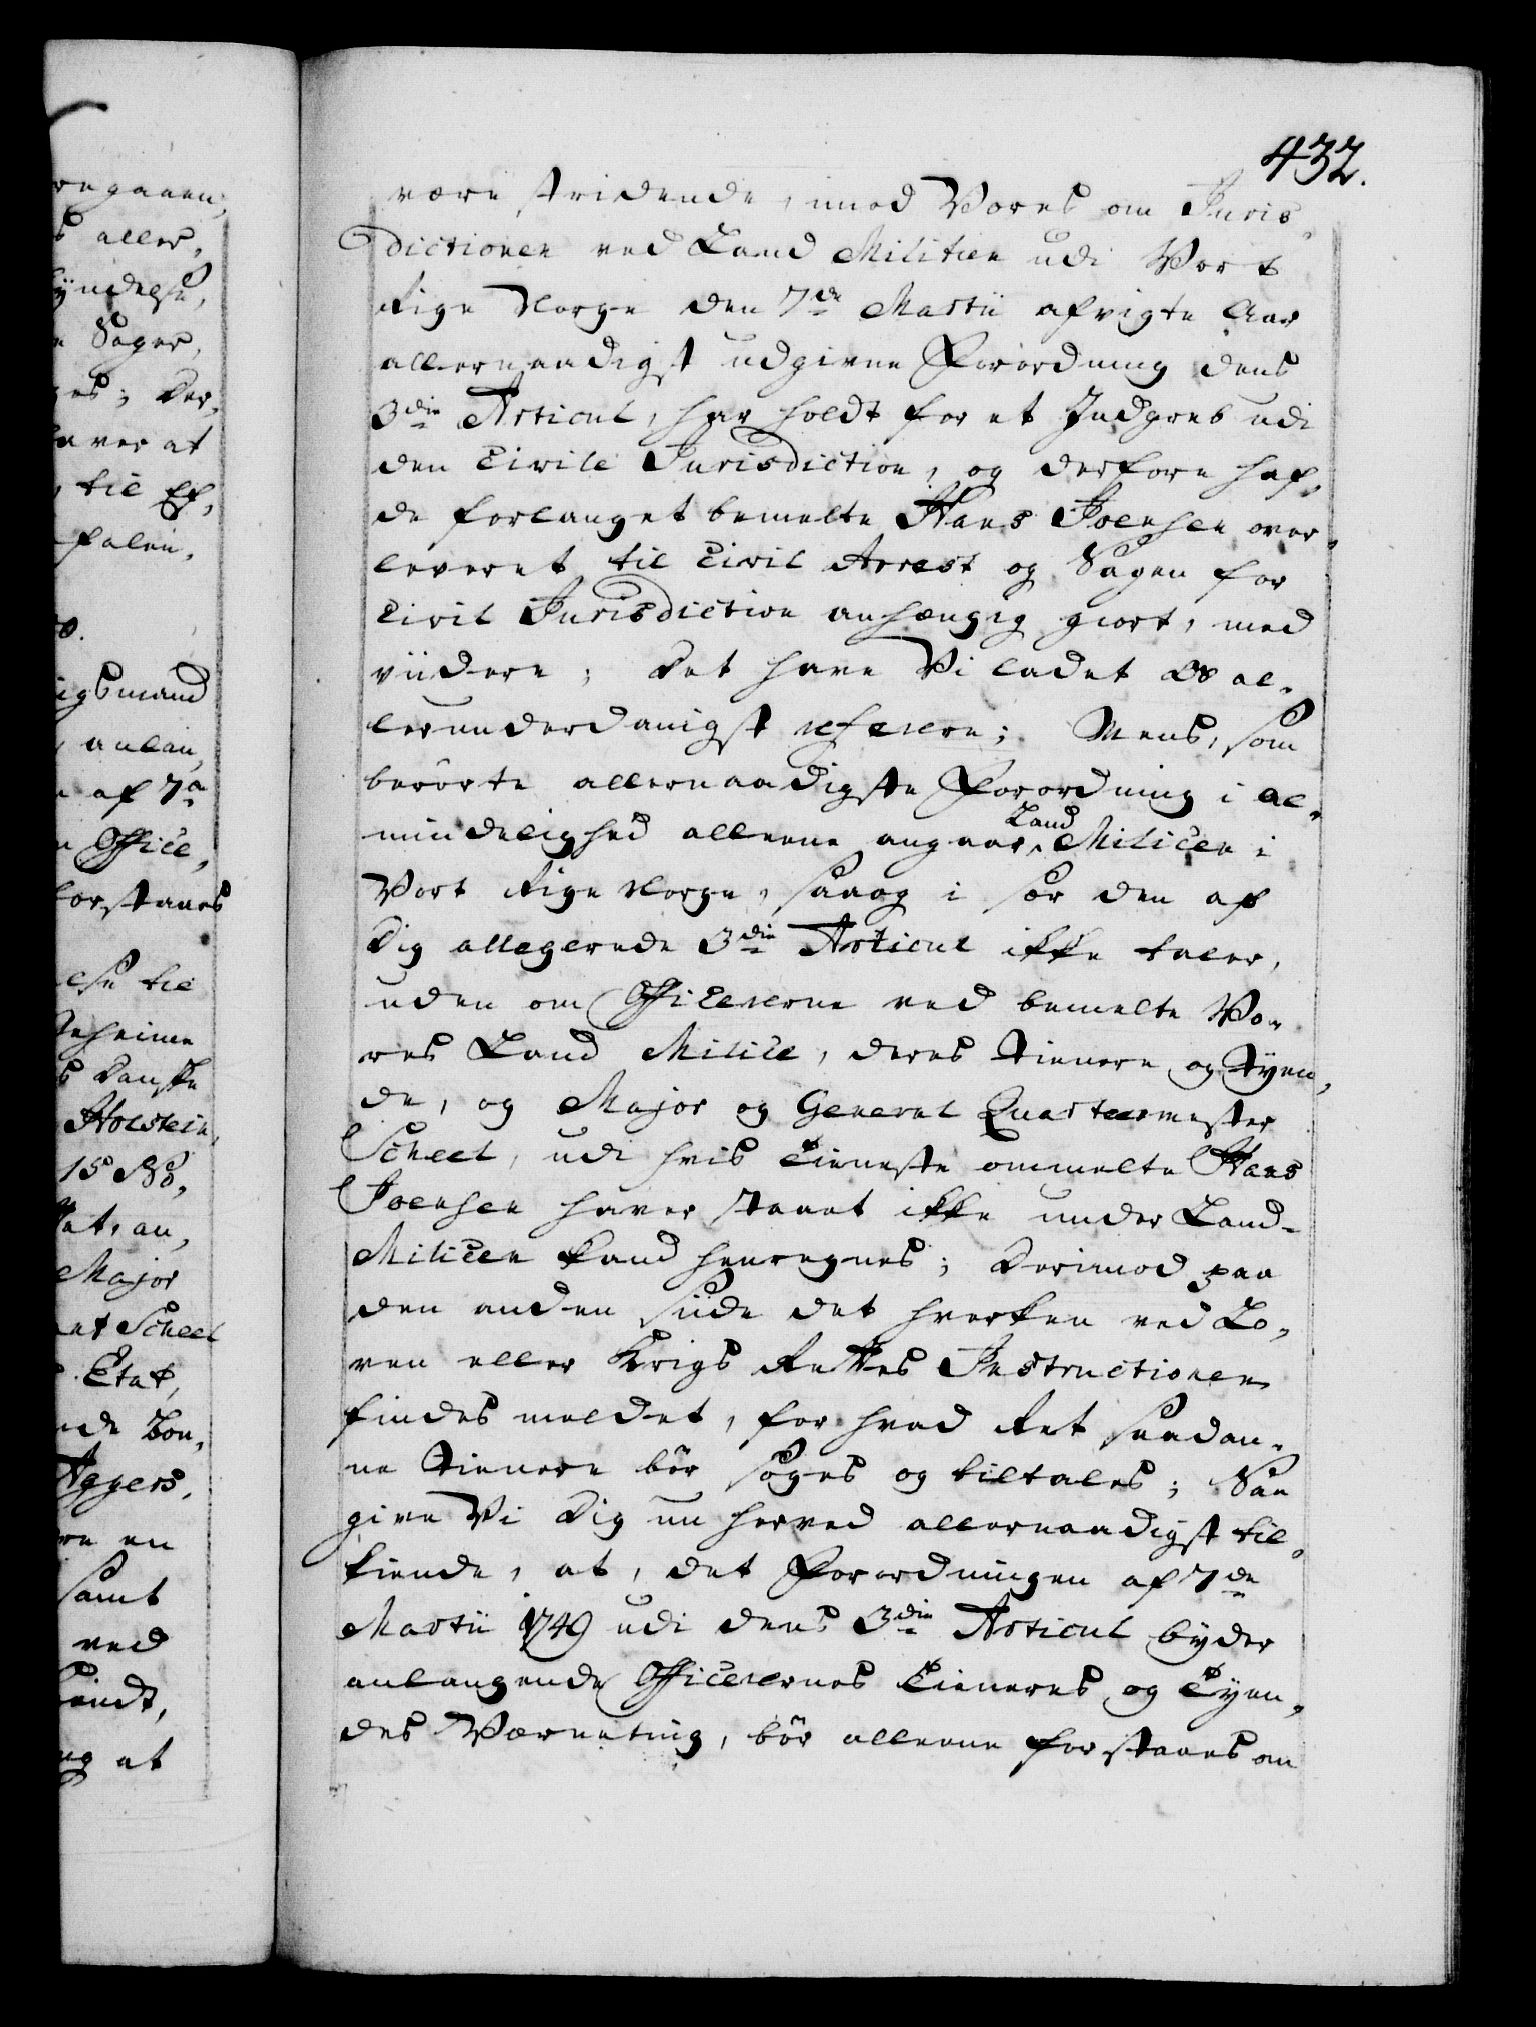 432.
være stridende, imod Vores om Juris-
dictionen ved Land Militien udi Vort
Rige Norge den 7de Martii afvigte Aar
allernaadigst udgivne Forordning dens
3die Articul, har holdt for et Indgreb udi
den Civile Jurisdiction, og derfore haf-
de forlanget bemelte Hans Joensen over-
leveret til Civil Arrest og Sagen for
Civil Jurisdiction anhængig giort, med
viidere; Det have Vi ladet Os al-
lerunderdanigst referere; Mens, som
berörte allernaadigste Forordning i Al-
mindelighed alleene angaar Land Milicen i
Vort Rige Norge, saa og i sær den af
Dig allegerede 3die Articul ikke taler,
uden om Officererne ved bemelte Vo-
res Land Milice, deres Tienere og Tyen-
de, og Major og General Quarteermester
Scheel, udi hvis Tieneste ommelte Hans
Joensen haver staaet ikke under Land-
Milicen kand henregnes; Derimod paa
den anden Siide det hverken ved Lo-
ven eller Krigs Rettes Instructionen
findes meldet, for hvad Ret saadan-
ne Tienere bör söges og tiltales; Saa
give Vi Dig nu herved allernaadigst til-
kiende, at, det Forordningen af 7de
Martii 1749 udi dens 3die Articul byder
anlangende Officerernes Tieneres og Tyen-
des Værneting, bör alleene forstaaes om
aller,
Sager,
ver at
til Ef-
igsmand
af 7de
Office,
forstaaes
til
Geheime
Danske
Holstein,
Major
Scheel
Etat,
Agers,
en
samt
ved
at